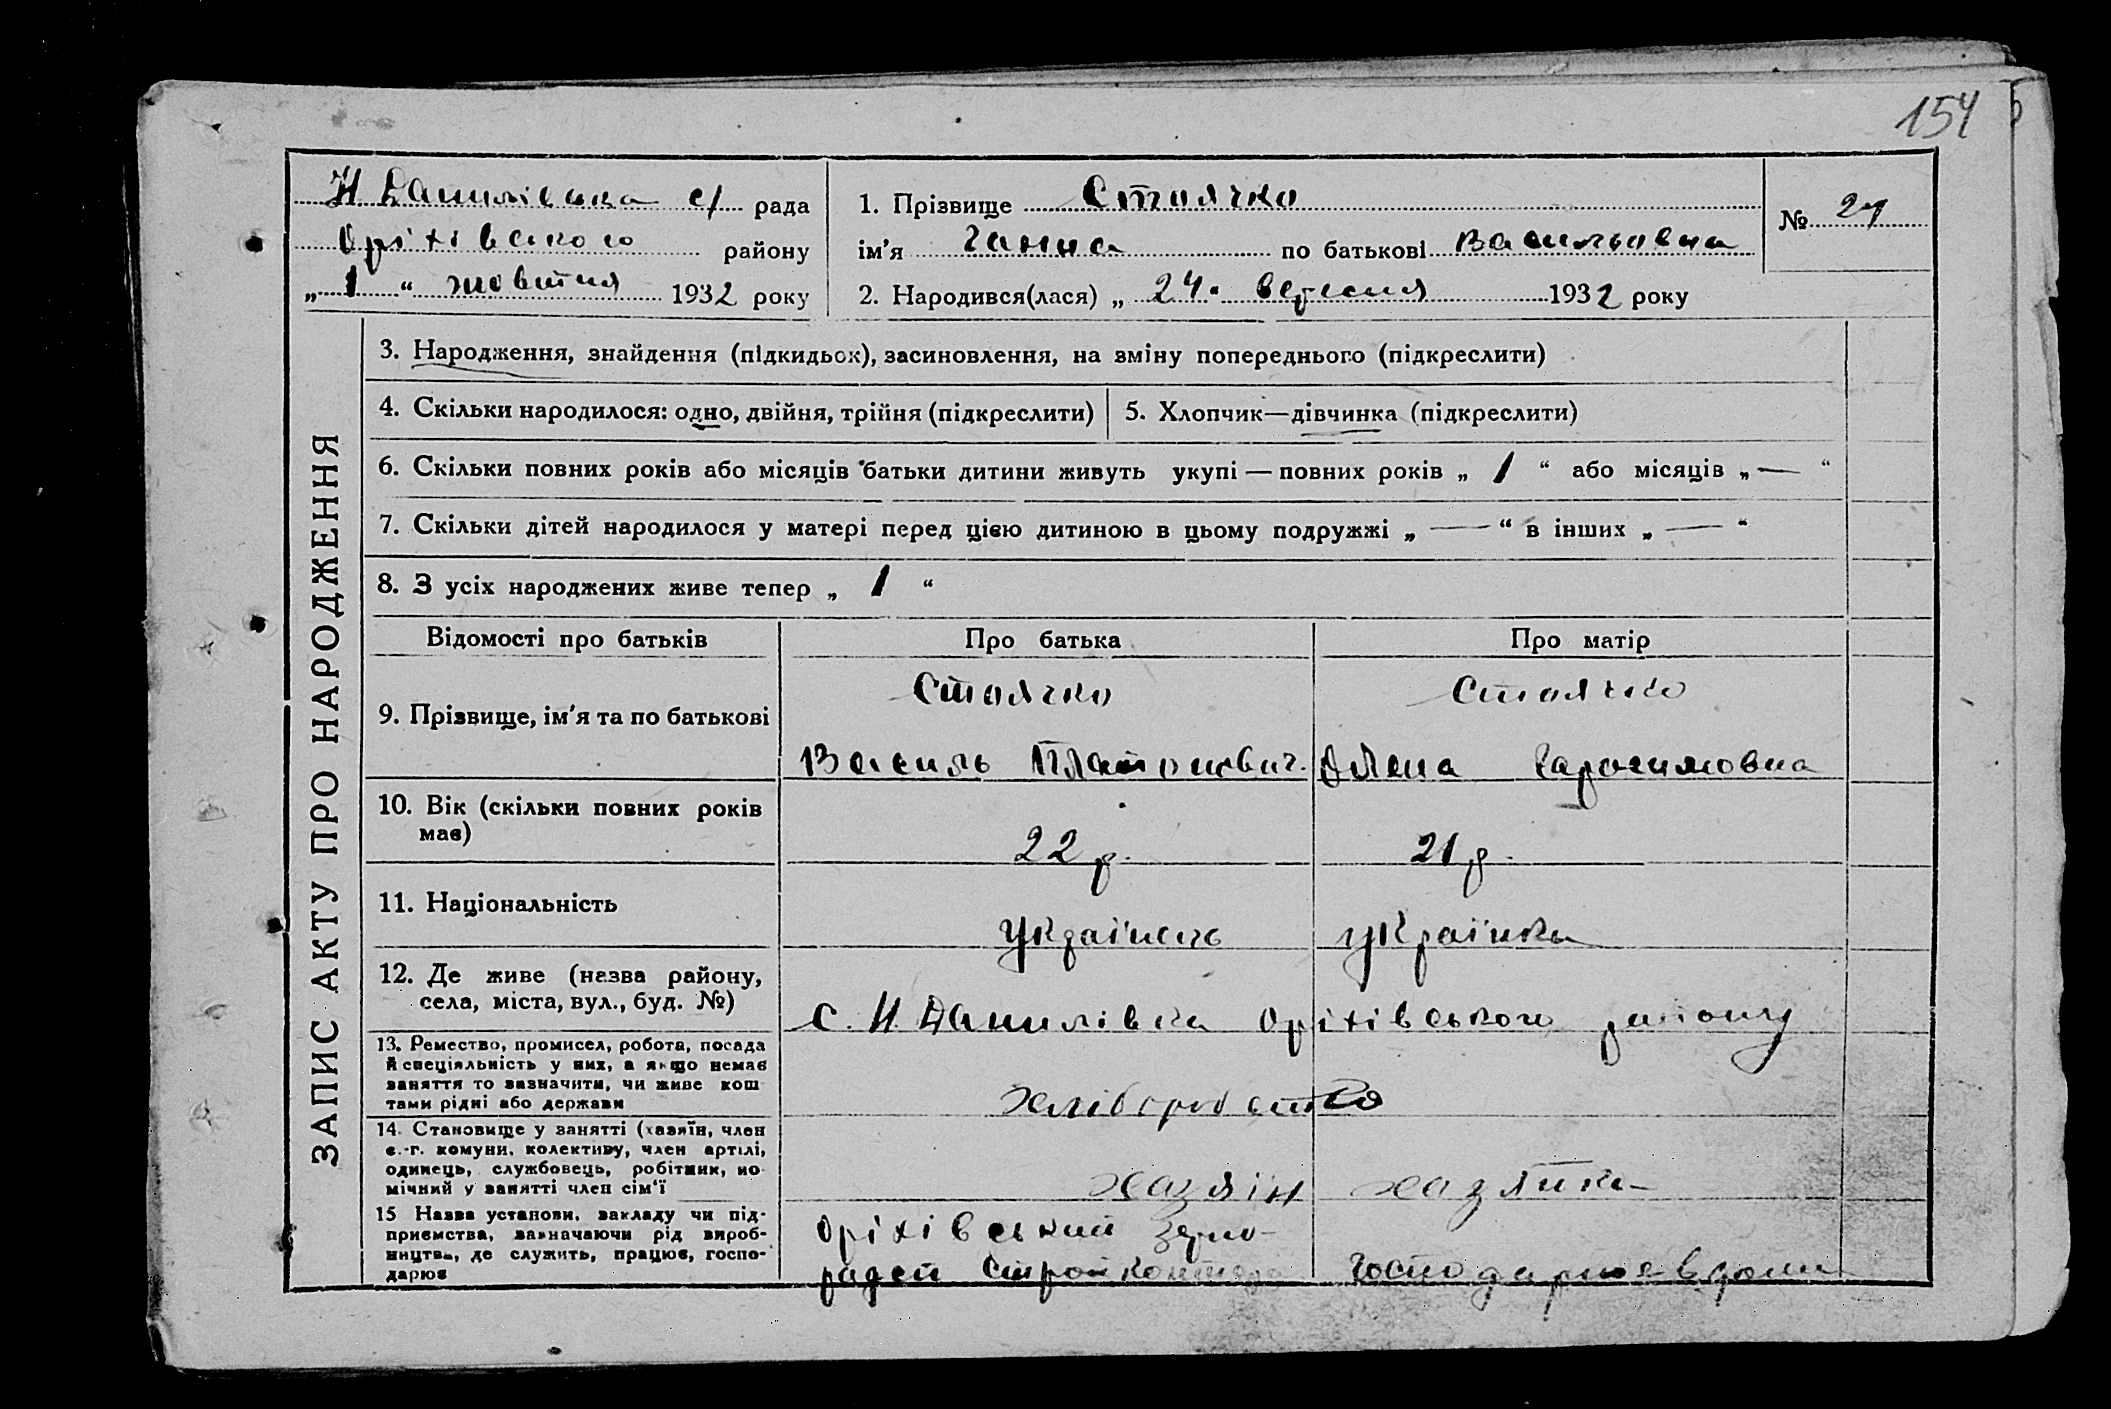 154
Н Данилівська с/ рада
Оріхівського району
„ 1 “ жовтня 1932 року
1. Прізвище Стоячко
ім’я Ганна по батькові Васильовна
2. Народився(лася) „ 24 “ вересня 1932 року
№ 27
ЗАПИС АКТУ ПРО НАРОДЖЕННЯ
3. Народження, знайдення (підкидьок), засиновлення, на зміну попереднього (підкреслити)
4. Скільки народилося: одно, двійня, трійня (підкреслити)
5. Хлопчик—дівчинка (підкреслити)
6. Скільки повних років або місяців батьки дитини живуть укупі — повних років „ 1 “ або місяців „ — “
7. Скільки дітей народилося у матері перед цією дитиною в цьому подружжі „ — “ в інших „ — “
8. З усіх народжених живе тепер „ 1 “
Відомості про батьків Про батька Про матір
9. Прізвище, ім’я та по батькові
Стоячко
Василь Платонович.
Стоячко
Олена Гаросимовна
10. Вік (скільки повних років
має)
22 р.
21 р.
11. Національність
Українець
українка
12. Де живе (назва району,
села, міста, вул., буд. №)
с. Н. Данилівка Оріхівського району
13. Ремество, промисел, робота, посада
й спеціяльність у них, а якщо немає
заняття то зазначити, чи живе кош
тами рідні або держави
Хліборобство
14. Становище у занятті (хазяїн, член
с.-г. комуни, колективу, член артілі,
одинець, службовець, робітник, по
мічний у занятті член сім‘ї
хазяін
хазяйка
15 Назва установи, закладу чи під-
приємства, зазначаючи рід вироб-
ництва, де служить, працює, госпо-
дарює
Оріхівський Зерно-
радсп
господарює вдома